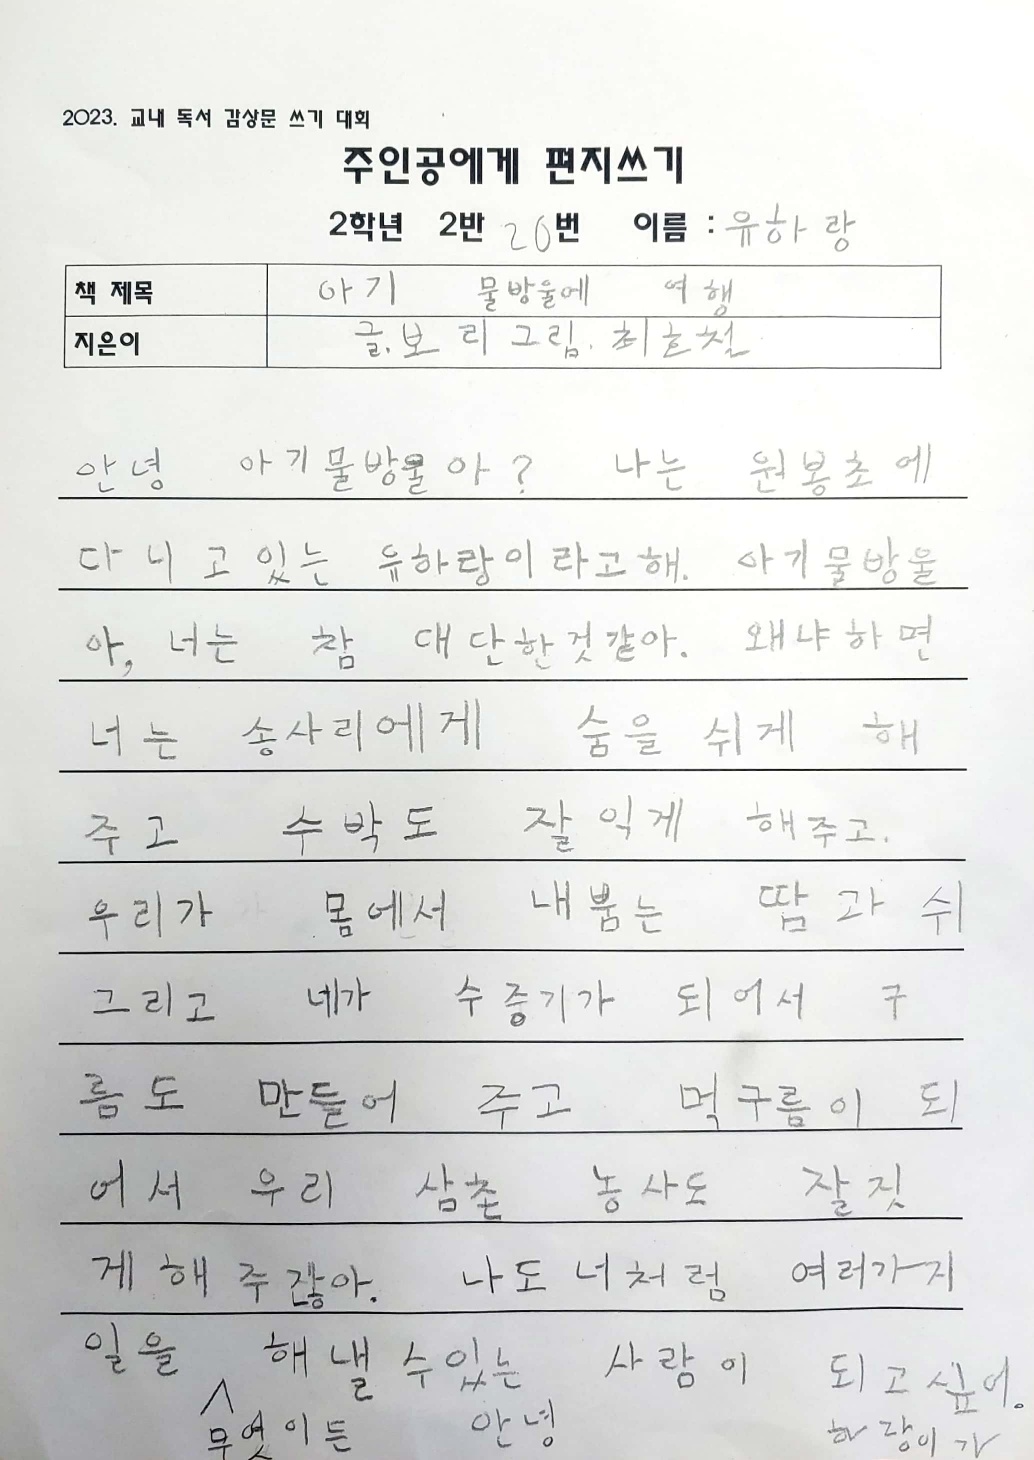 2023. 교내 독서 감상문 쓰기 대회
주인공에게 편지쓰기
2학년 2반 20번 이름 : 유하랑
책 제목 아기 물방울에 여행
지은이 글.보리 그림.최호철
안녕 아기물방울아? 나는 원봉초에
다니고있는 유하랑이라고해. 아기물방울
아, 너는 참 대단한것같아. 왜냐하면
너는 송사리에게 숨을 쉬게 해
주고 수박도 잘익게 해주고.
우리가 몸에서 내뿜는 땀과 쉬
그리고 네가 수증기가 되어서 구
름도 만들어 주고 먹구름이 되
어서 우리 삼촌 농사도 잘짓
게해주잖아. 나도너처럼 여러가지
일을 해낼수있는 사람이 되고싶어.
무엇이든 안녕 하랑이가